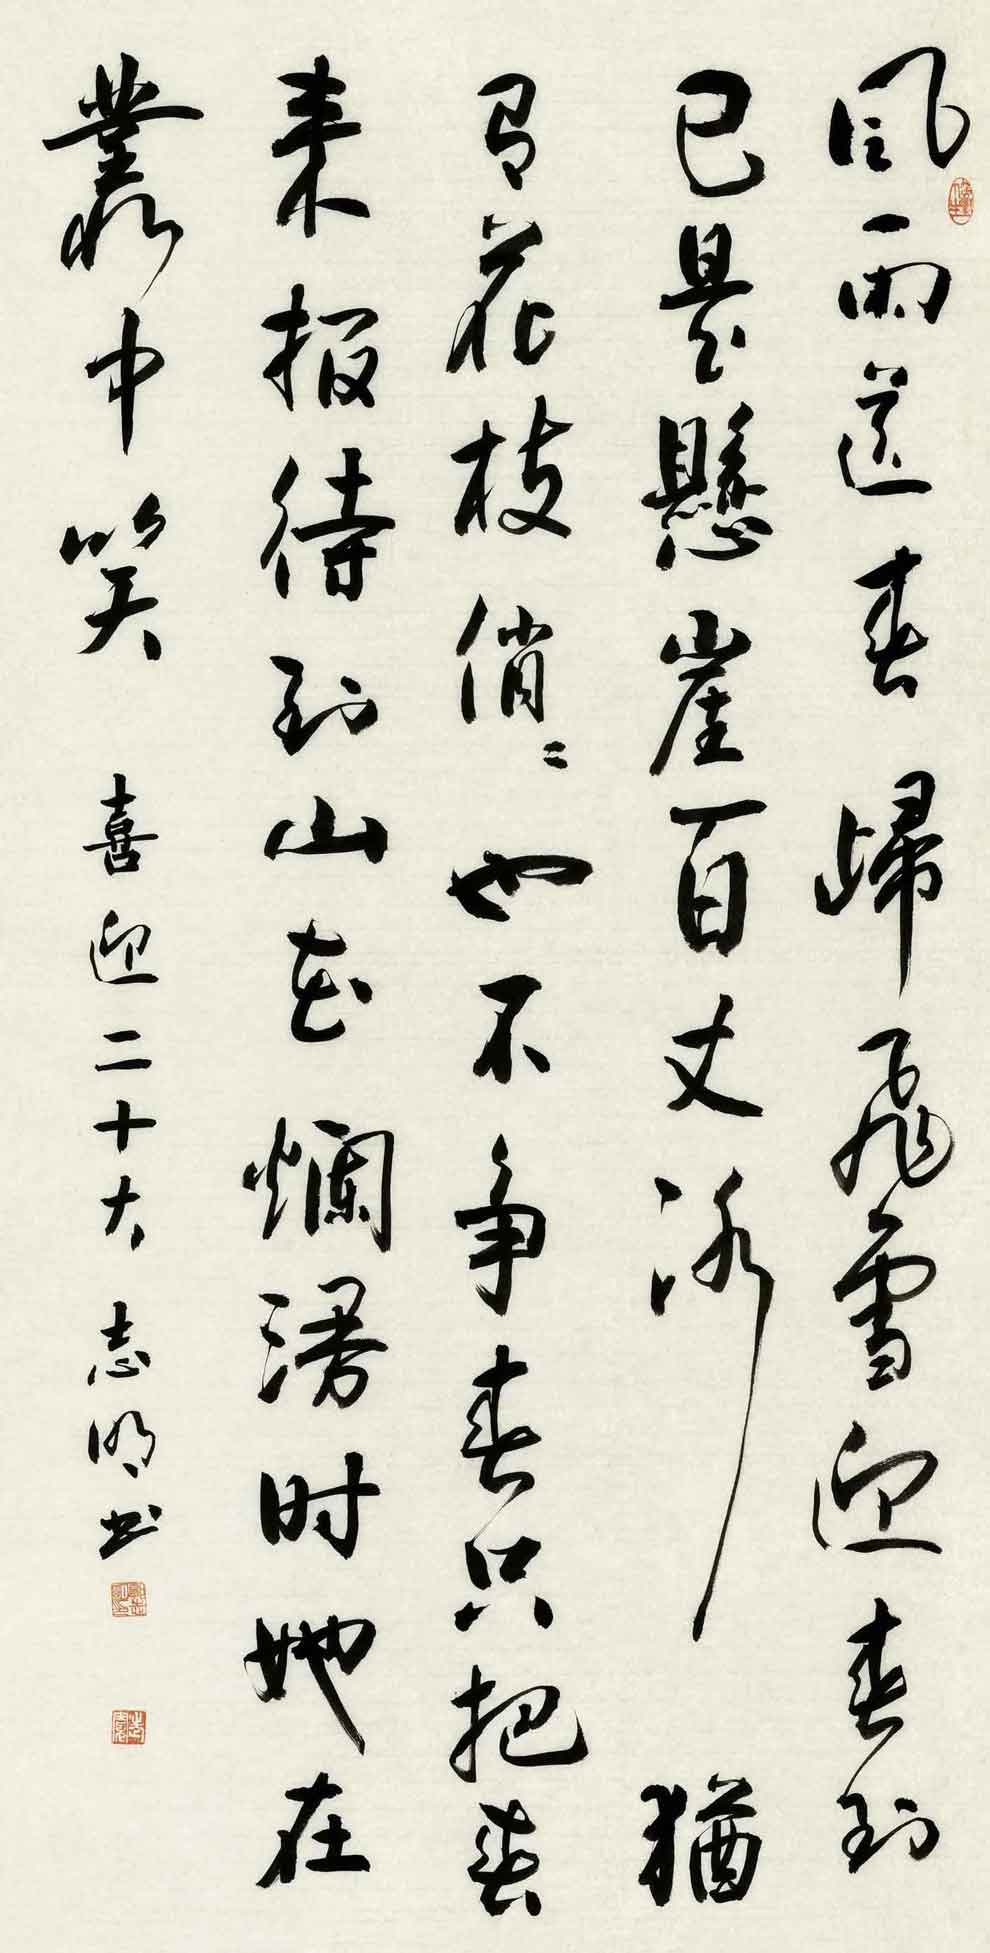 風雨送春歸飛雪迎春到
已是懸崖百丈冰猶
有花枝俏々也不争春只把春
来报待到山花爛漫时她在
叢中笑 喜迎二十大 志明书